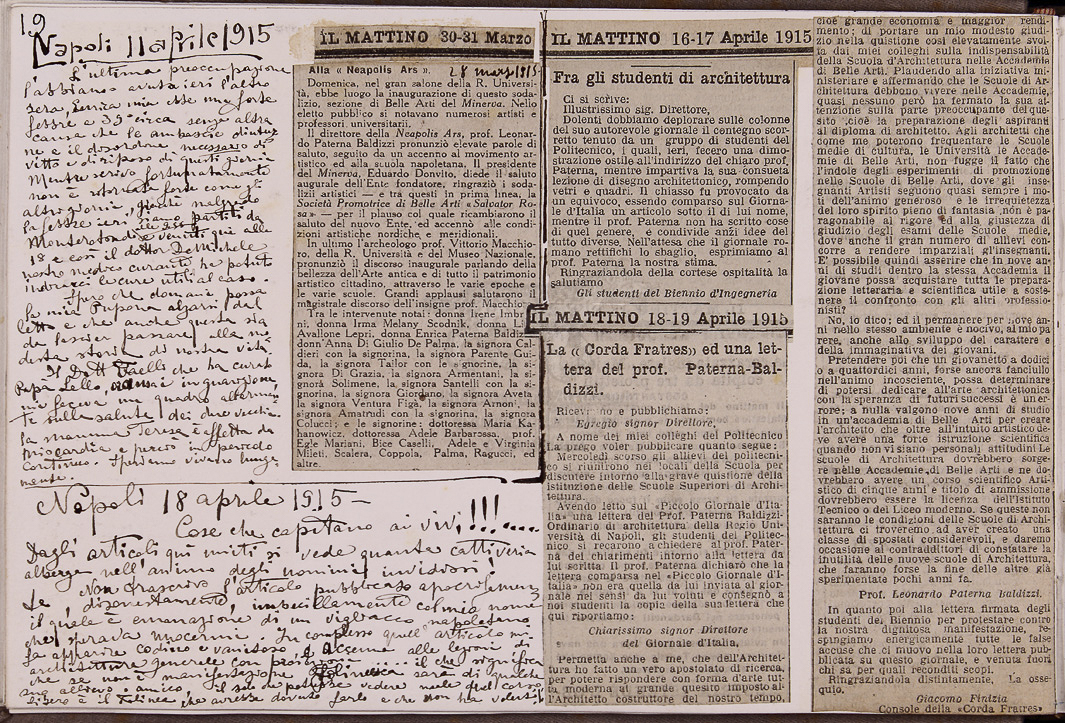 19
Napoli 11 aprile 1915
L'ultima preoccupazione
l'abbiamo avuta ieri l'altro
sera, Enrica mia ebbe una forte
febbre a 39° circa senza altra
causa che le
ne e il disordine necessario di
vitto e di riposo di questi giorni
Mentre scrivo fortunatamente
non è
altro giorno,
la febbre ieri siamo partiti da
Monterotondo e venuti qui alle
18 e così il dottor De Michele
nostro medico curante ha potuto
indicarci le cure utili al caso
Spero che domani possa
la mia Pupona alzarsi dal
letto e che anche questa sia
da passare alla mo
desta storia di nostra vita
Il Dott. che ha curato
Papà Lello, oramai in guarigione,
mi faceva un quadro allarman
te sulla salute dei due vecchi.
la mamma Teresa è affetta da
miocardia e perciò in pericolo
continuo. Speriamo vivano lunga-
mente.
Napoli 18 aprile 1915 —
Cose che capitano ai vivi!!!....
Dagli articoli qui uniti si vede quanta cattiveria
alberga nell'animo degli uomini invidiosi!
Non trascrivo l'articolo pubblicato
imbecillemente col mio nome
il quale è emanazione di un vigliacco napoletano
che sperava nuocermi. In complesso quell'articolo mi
fa apparire codino e vanitoso, e accenna alle lezioni di
architettura generale con
che se non è manifestazione sarà di qualche
suo allievo o amico, il solo che potesse vedere male del corso
libero è il che avrebbe dovuto farlo e che non ha
IL MATTINO 30-31 Marzo
28 marzo 1915
Alla « Neapolis Ars ».
Domenica, nel gran salone della R. Universi-
tà, ebbe luogo la inaugurazione di questo soda-
lizio, sezione di Belle Arti del Minerva. Nello
eletto pubblico si notavano numerosi artisti e
professori universitarii.
Il direttore della Neapolis Ars, prof. Leonar-
do Paterna Baldizzi pronunziò elevate parole di
saluto, seguito da un accenno al movimento ar-
tistico ed alla scuola napoletana. Il presidente
del Minerva, Eduardo Donvito, diede il saluto
augurale dell'Ente fondatore, ringraziò i soda-
lizii artistici — e tra questi in prima linea, la
Società Promotrice di Belle Arti «Salvator Ro-
sa» — per il plauso col quale ricambiarono il
saluto del nuovo Ente, ed accennò alle con-
dizioni artistiche nordiche, e meridionali.
In ultimo l'archeologo prof. Vittorio Macchio-
ro, della R. Università e del Museo Nazionale,
pronunziò il discorso inaugurale parlando della
bellezza dell'Arte antica e di tutto il patrimonio
artistico cittadino, attraverso le varie epoche e
le varie scuole. Grandi applausi salutarono il
magistrale discorso dell'insigne prof. Macchioro.
Tra le intervenute notai: donna Irene Imbr-
ni, donna Irma Melany Scodnik, donna
Avallone Lepri, donna Enrica Paterna Baldizzi
donn'Anna Di Giulio De Palma, la signora Cal-
dieri con la signorina, la signora Parente Gui-
da, la signora Tailor con le signorine, la signo-
ra Di Grazia, la signora Armentani, la signo-
rà Solimene, la signora Santelli con la signo-
rina, la signora Giordano, la signora Aveta
la signora Ventura Figà la signora Arnoni, la
signora Amatrudi con la signorina, la signora
Colucci; e le signorine: dottoressa Maria Ka-
hanowicz, dottoressa Adele Barbarossa, prof.
Egle Mariani, Bice Caselli, Adele e Virginia
Mileti, Scalera, Coppola, Palma, Ragucci, ed
altre.
IL MATTINO 16-17 Aprile 1915
Fra gli studenti di architettura
Ci si scrive:
Illustrissimo sig. Direttore,
Dolenti dobbiamo deplorare sulle colonne
del suo autorevole giornale il contegno scor-
retto tenuto da un gruppo di studenti del
Politecnico, i quali, ieri, fecero una dimo-
strazione ostile all'indirizzo del chiaro prof,
Paterna, mentre impartiva la sua consueta
lezione di disegno architettonico, rompendo
vetri e quadri. Il chiasso fu provocato da
un equivoco, essendo comparso sul Giorna-
le d'Italia un articolo sotto il di lui nome,
mentre il prof. Paterna non ha scritto cose
di quel genere, e condivide anzi idee del
tutto diverse. Nell'attesa che il giornale ro-
mano rettifichi lo sbaglio, esprimiamo al
prof. Paterna la nostra stima.
Ringraziandola della cortese ospitalità la
salutiamo
Gli studenti del Biennio d'Ingegneria
IL MATTINO 18-19 Aprile 1915
La « Corda Fratres» ed una let-
tera del prof. Paterna-Bal-
dizzi.
Ricevono e pubblichiamo:
Egregio signor Direttore,
A nome dei miei colleghi del Politecnico
La prego voler pubblicare quanto segue:
Mercoledì scorso gli allievi del politecni-
co si riunirono nei locali della Scuola per
discutere intorno alla grave quistione della
istituzione delle Scuole Superiori di Archi-
tettura.
Avendo letto sul «Piccolo Giornale d'Ita-
lia» una lettera del Prof. Paterna Baldizzi-
Ordinario di architettura della Regio Uni-
versità di Napoli, gli studenti del Politec-
nico, si recarono a chiedere al prof. Pater-
na dei chiarimenti intorno alla lettera da
lui scritta Il prof. Paterna dichiarò che la
lettera comparsa nel «Piccolo Giornale d'I-
talia» non era quella da lui inviata al gior-
nale nei sensi da lui voluti e consegnò a
noi studenti la copia della sua lettera che
qui riportiamo:
Chiarissimo signor Direttore
del Giornale d'Italia,
Permetta anche a me, che dell'Architet-
tura ho fatto un vero apostolato di ricerca,
per potere rispondere con forma d'arte tut-
ta moderna al grande questito imposto al-
l'Architetto costruttore del nostro tempo,
cioè grande economia e maggior rendi-
mento; di portare un mio modesto giudi-
zio nella quistione così elevatamente svol-
ta dai miei colleghi sulla indispensabilità
della Scuola d'Architettura nelle Accademie
di Belle Arti. Plaudendo alla iniziativa mi-
nisteriale e affermando che le Scuole di Ar-
chitettura debbono vivere nelle Accademie,
quasi nessuno però ha fermato la sua at-
tenzione sulla parte preoccupante del que-
sito ,cioè la preparazione degli aspiranti
al diploma di architetto. Agli architetti che
come me poterono frequentare le Scuole
medie di cultura, le Università le Accade-
mie di Belle Arti, non fugge il fatto che
l'indole degli esperimenti di promozione
nelle Scuole di Belle Arti, dove gli inse-
gnanti Artisti seguono quasi sempre i mo-
ti dell'animo generoso e le irrequietezze
del loro spirito pieno di fantasia ,non è pa-
ragonabile al rigore ed alla giustezza di
giudizio degli esami delle Scuole medie,
dove anche il gran numero di allievi con-
corre a rendere imparziali gl'insegnanti.
E' possibile quindi asserire che in nove an-
ni di studi dentro la stessa Accademia il
giovane possa acquistare tutta le prepara-
zione letteraria e scientifica utile a soste-
nere il confronto con gli altri professio-
nisti?
No, io dico; ed il permanere per nove an-
ni nello stesso ambiente è nocivo, al mio pa-
rere, anche allo sviluppo del carattere e
della immaginativa dei giovani.
Pretendere poi che un giovanetto a dodici
o a quattordici anni, forse ancora fanciullo
nell'animo incosciente, possa determinare
di potersi dedicare all'arte architettonica
con la speranza di futuri successi è un er-
rore; a nulla valgono nove anni di studio
in un'accademia di Belle Arti per creare
l'architetto che oltre all'intuito artistico de-
ve avere una forte istruzione scientifica
quando non vi siano personali attitudini Le
scuole di Architettura dovrebbero sorge-
re nelle Accademie di Belle Arti e ne do-
vrebbero avere un corso scientifico Arti-
stico di cinque anni e titolo di ammissione
dovrebbero essere la licenza dell'Istituto
Tecnico o del Liceo moderno. Se queste non
saranno le condizioni delle Scuole di Archi-
tettura ci troveremo ad aver creato una
classe di spostati considerevoli, e daremo
occasione ai contradditori di constatare la
inutilità delle nuove scuole di Architettura,
che faranno forse la fine delle altre già
sperimentate pochi anni fa.
Prof. Leonardo Paterna Baldizzi.
In quanto poi alla lettera firmata degli
studenti del Biennio per protestare contro
la nostra dignitosa manifestazione, re-
spingiamo energicamente tutte le false
accuse che ci muovo nella loro lettera pub-
blicata su questo giornale, e venuta fuori
chi sa per quali reconditi scopi.
Ringraziandola distintamente, La osse-
quio.
Giacomo Finizia
Console della «Corda Fratres»